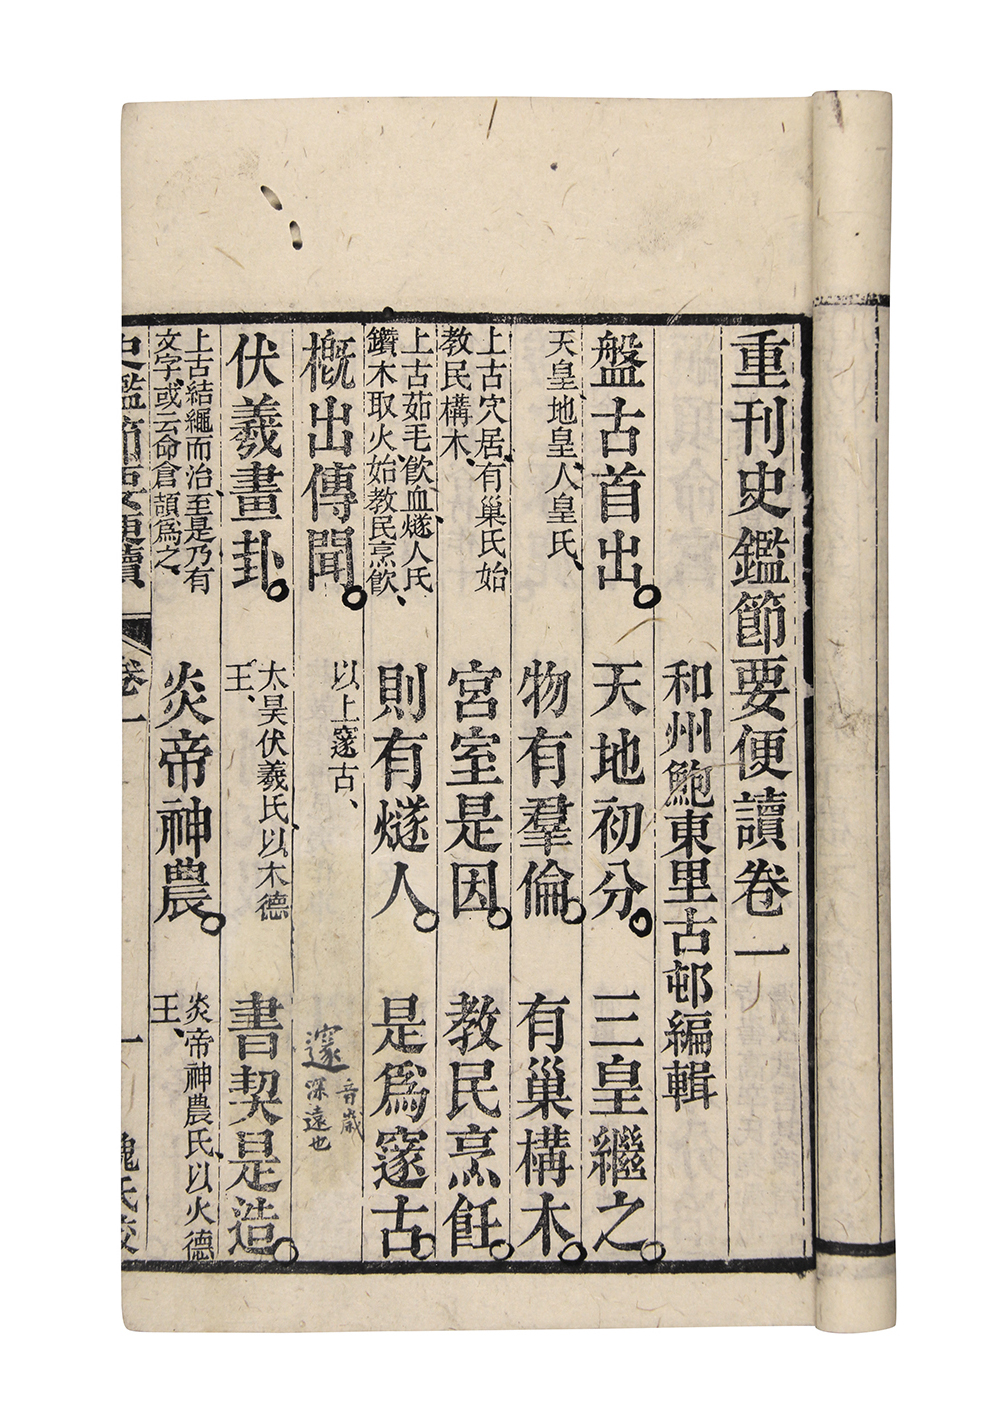 重刊史鑑節要便讀卷一
和州鮑東里古邨編輯
盤古首出。天地初分。三皇繼之。
天皇、地皇、人皇氏、
物有羣倫。有巢構木。
上古穴居、有巢氏始
教民構木、
宮室是因。教民烹飪。
上古茹毛飲血、燧人氏
鑽木取火、始教民烹飲、
則有燧人。是爲邃古。
槪出傳聞。
以上邃古、
邃
音歲
深遠也
伏羲畫卦。
太昊伏羲氏、以木德
王、
書契是造。
上古結繩而治、至是乃有
文字、或云命倉頡爲之、
炎帝神農。
炎帝神農氏、以火德
王、
史鑑節要便讀
卷一
一
魏氏校